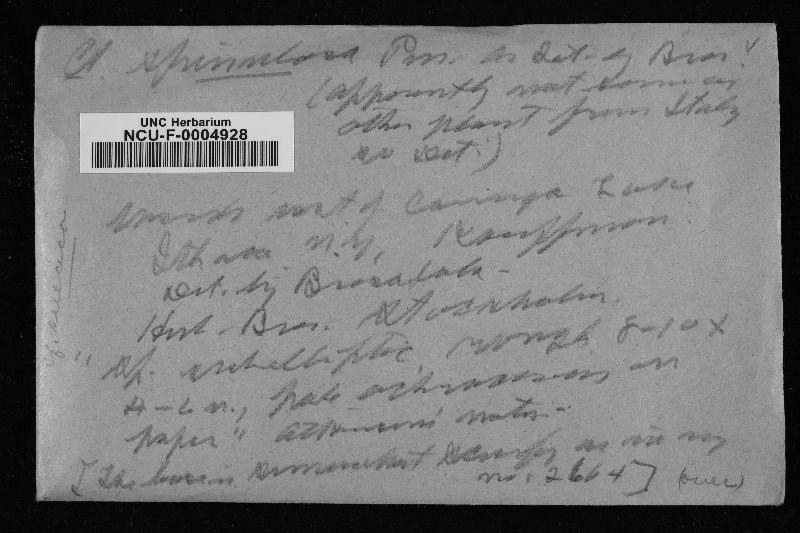 Cl. spinulosa Pers. as det. by Bres. ✓
(apparently not same as
other plant from Italy
so det.)
UNC Herbarium
NCU-F-0004928
Woods west of Cayuga Lake
Ithaca N.Y., Kauffman.
Det. by Bresadola -
Herb. Bres. Stockholm.
"Sp. subelliptic, rough 8-10 x
4-6 u., pale ochraceous on
paper" Atkinson's notes.-
[The base is somewhat scurfy as in my
no. 2664] (over)